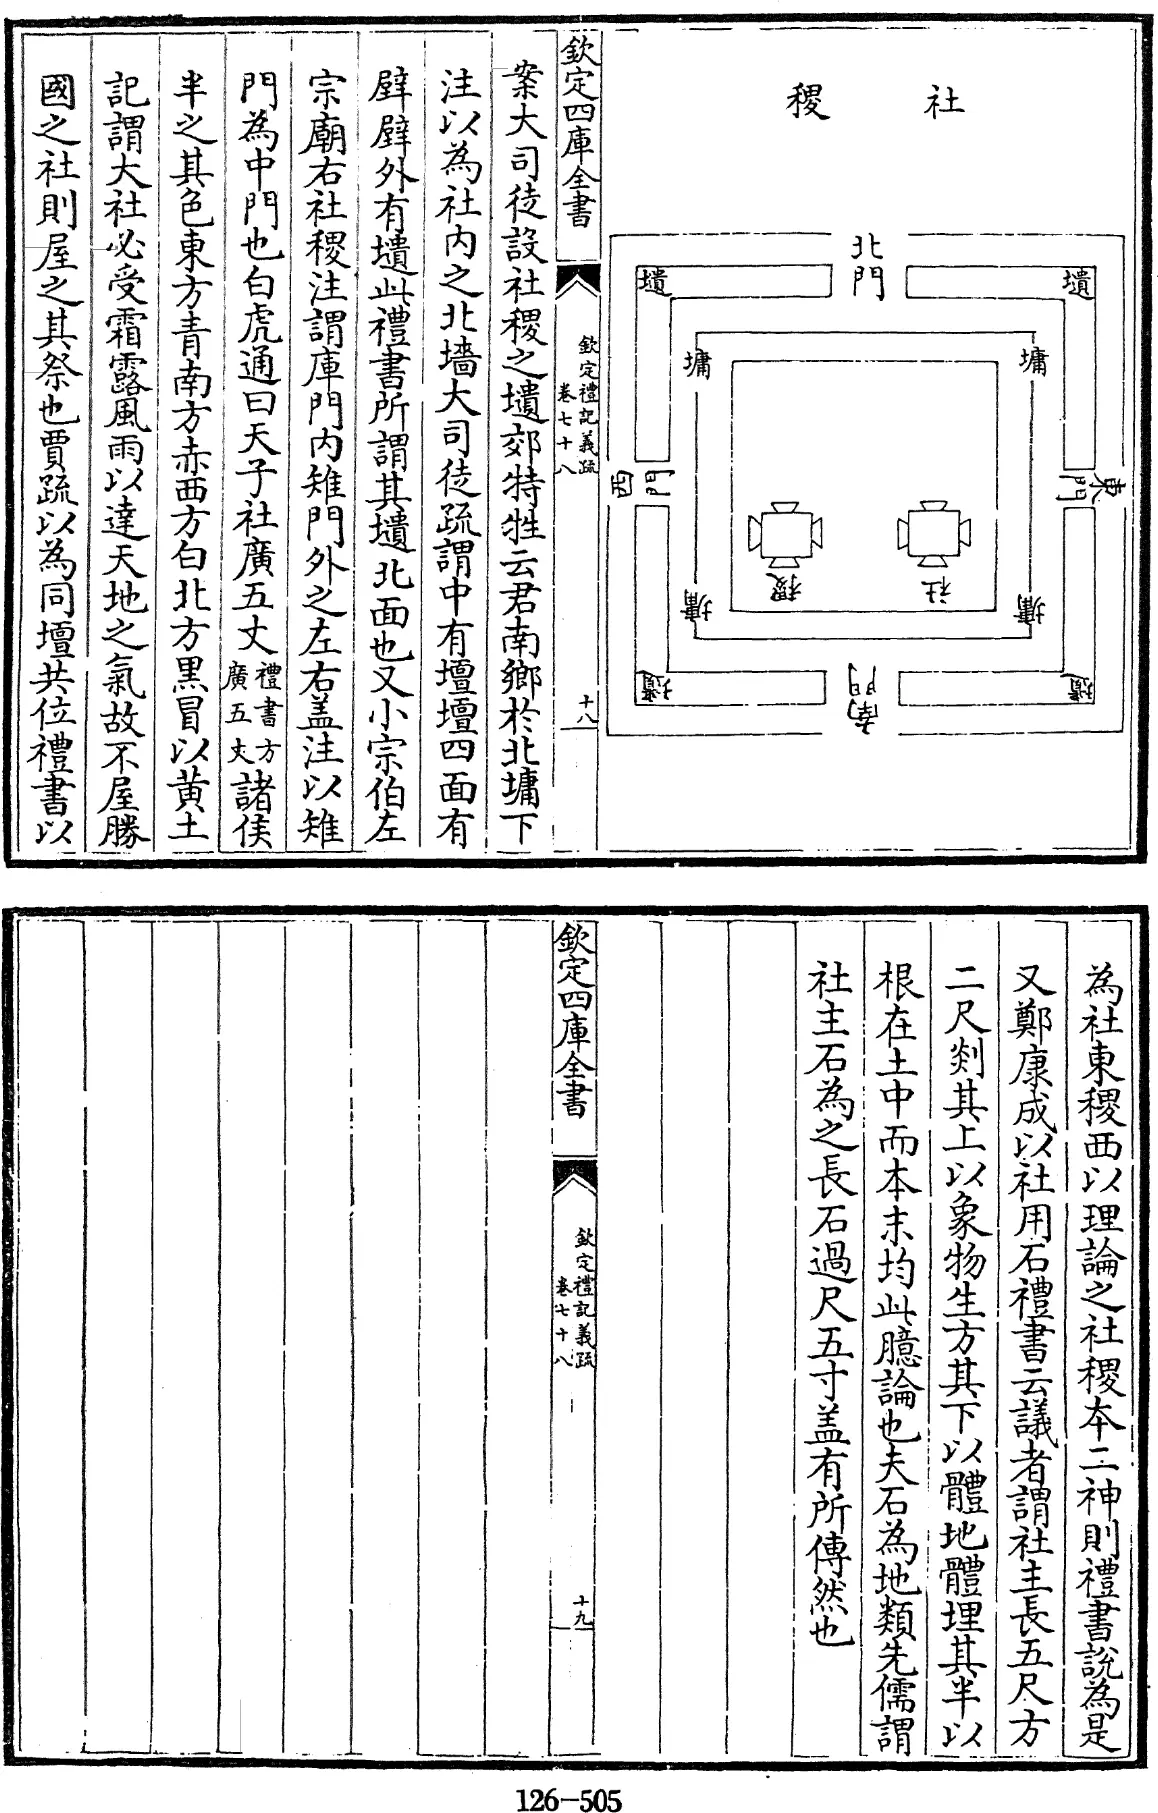 社稷
北門
壝
壝
墉
墉
東門
西門
社
稷
墉
墉
壝
壝
南門
欽定四庫全書
欽定禮記義疏
卷七十八
十八
案大司徒設社稷之壝郊特牲云君南鄉於北墉下
注以為社內之北墻大司徒疏謂中有壇壇四面有
壁壁外有壝此禮書所謂其壝北面也又小宗伯左
宗廟右社稷注謂庫門內雉門外之左右盖注以雉
門為中門也白虎通曰天子社廣五丈禮書方廣五丈諸侯
半之其色東方青南方赤西方白北方黑冒以黃土
記謂大社必受霜露風雨以達天地之氣故不屋勝
國之社則屋之其祭也賈疏以為同壇共位禮書以
為社東稷西以理論之社稷本二神則禮書說為是
又鄭康成以社用石禮書云議者謂社主長五尺方
二尺剡其上以象物生方其下以體地體埋其半以
根在土中而本末均此臆論也夫石為地類先儒謂
社主石為之長石過尺五寸盖有所傳然也
欽定四庫全書
欽定禮記義疏
卷七十八
十九
126-505